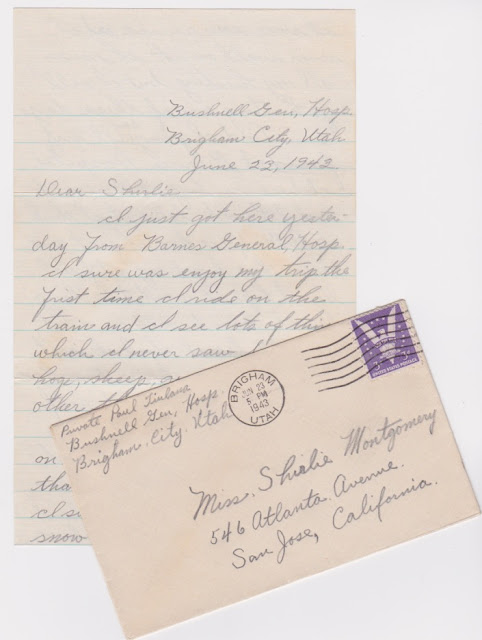 Bushnell Gen, Hosp.
Brigham City, Utah
June 23, 1942
Dear Shirlie
I just got here yester-
day from Barnes General, Hosp.
I sure was enjoy my trip the
first time I ride on the
train and I see lots of
which I never saw
hog, sheep,
other
on
tha
I
snow
Private Paul
Bushnell Gen, Hosp.
Brigham. City, Utah
BRIGHAM
JUN 23
5 PM
1943
UTAH
UNITED STATES POSTAGE
Miss. Shirlie Montgomery
546 Atlanta. Avenue.
San Jose, California.